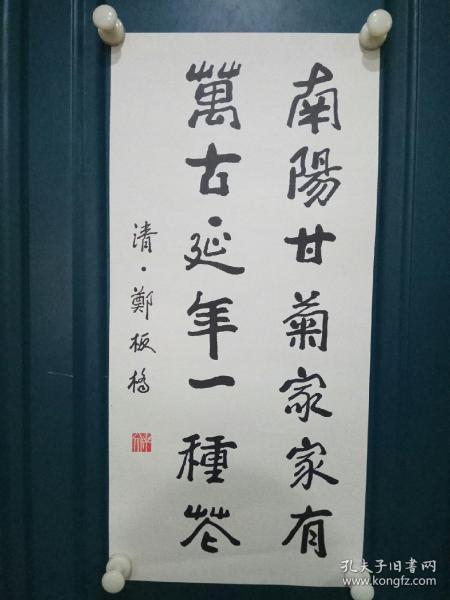 南陽甘菊家家有
萬古·延年一種花
清·鄭板橋
孔夫子旧书网
www.kongfz.com